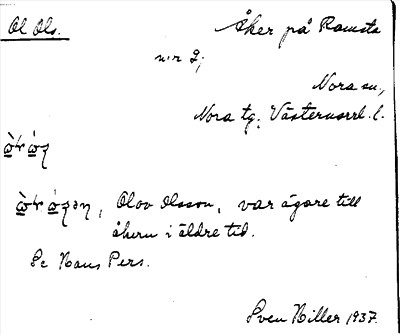 Ol Ols. Åker på Ramsta
n:r 2;
Nora sn,
Nora tg. Västernorrl. l.
Olov Olsson, var ägare till
åkern i äldre tid.
Se Hans Pers.
Sven Hiller 1937.